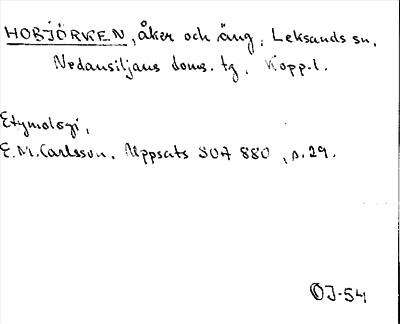 HOBJÖRKEN, åker och äng, Leksands sn,
Nedansiljans doms. tg, Kopp.l.
Etymologi,
E.M. Carlsson, Uppsats SOA 880, s. 29.
OJ-54